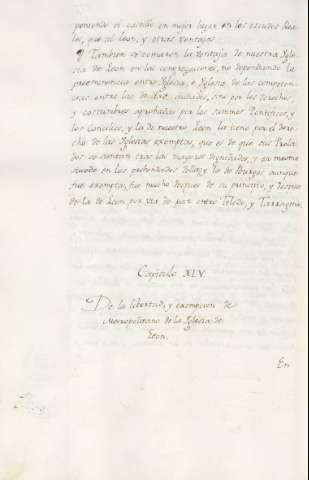 poniendo el castillo en mejor lugar en los escudos Rea-
les, que al leon, y otras ventajas.
¶ Tambien se tomaron la ventaja de nuestra Igle-
sia de Leon en las congregaciones, no dependiendo la
preeminencia entre Iglesia, e Iglesia de las competen-
cias entre las ciudades, sino por los derechos,
y costumbres aprobadas por los summos Pontifices, y
los Concilios, y la de nuestro Leon la tiene por el dere-
cho de las Iglesias exemptas, que es de que sus Prela-
dos se sientan tras las mayores dignidades, y lo mismo
sucede en los prebendados y la de Burgos aunque
fue exempta, fue mucho despues de su principio, y despues
de la de Leon por via de paz entre Toledo, y Tarragona.
Capitulo XLV.
De la libertad, y exempcion de
Metropolitano de la Iglesia de
Leon.
En